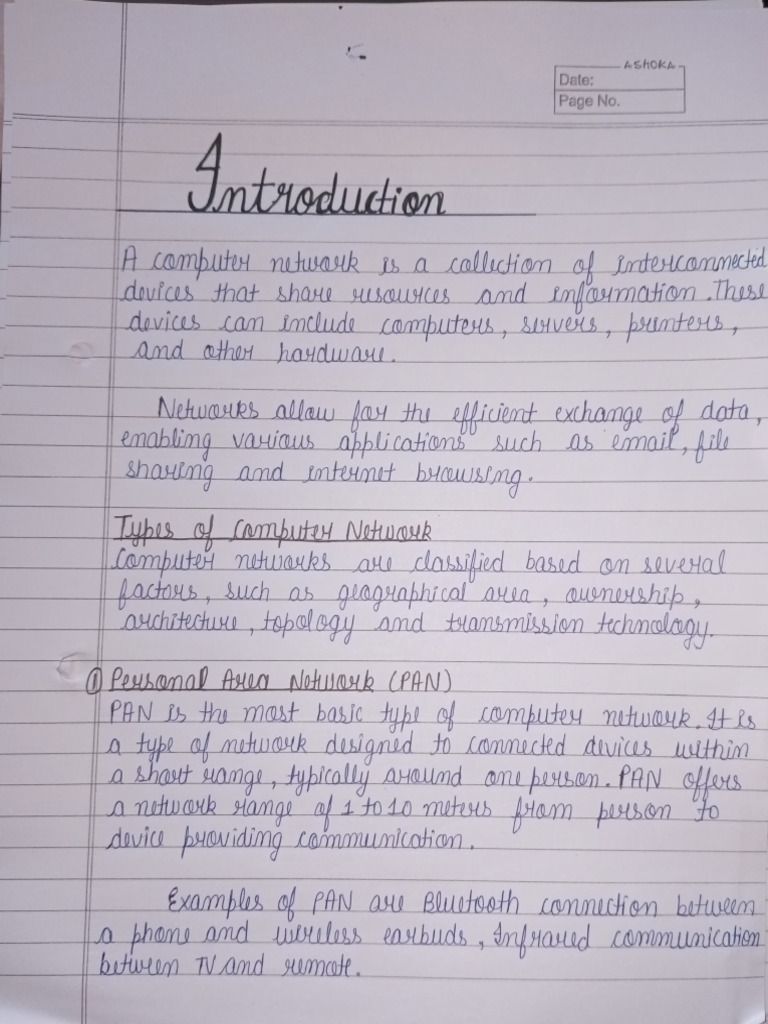 ASHOKA
Date:
Page No.
Introduction
A computer network is a collection of interconnected
devices that share resources and information. These
devices can include computers, servers, printers,
and other hardware.
Networks allow for the efficient exchange of data,
enabling various applications such as email, file
sharing and internet browsing.
Types of Computer Network
Computer networks are classified based on several
factors, such as geographical area, ownership,
architecture, topology and transmission technology.
① Personal Area Network (PAN)
PAN is the most basic type of computer network. It is
a type of network designed to connected devices within
a short range, typically around one person. PAN offers
a network range of 1 to 10 meters from person to
device providing communication.
Examples of PAN are Bluetooth connection between
a phone and wireless earbuds, Infrared communication
between TV and remote.